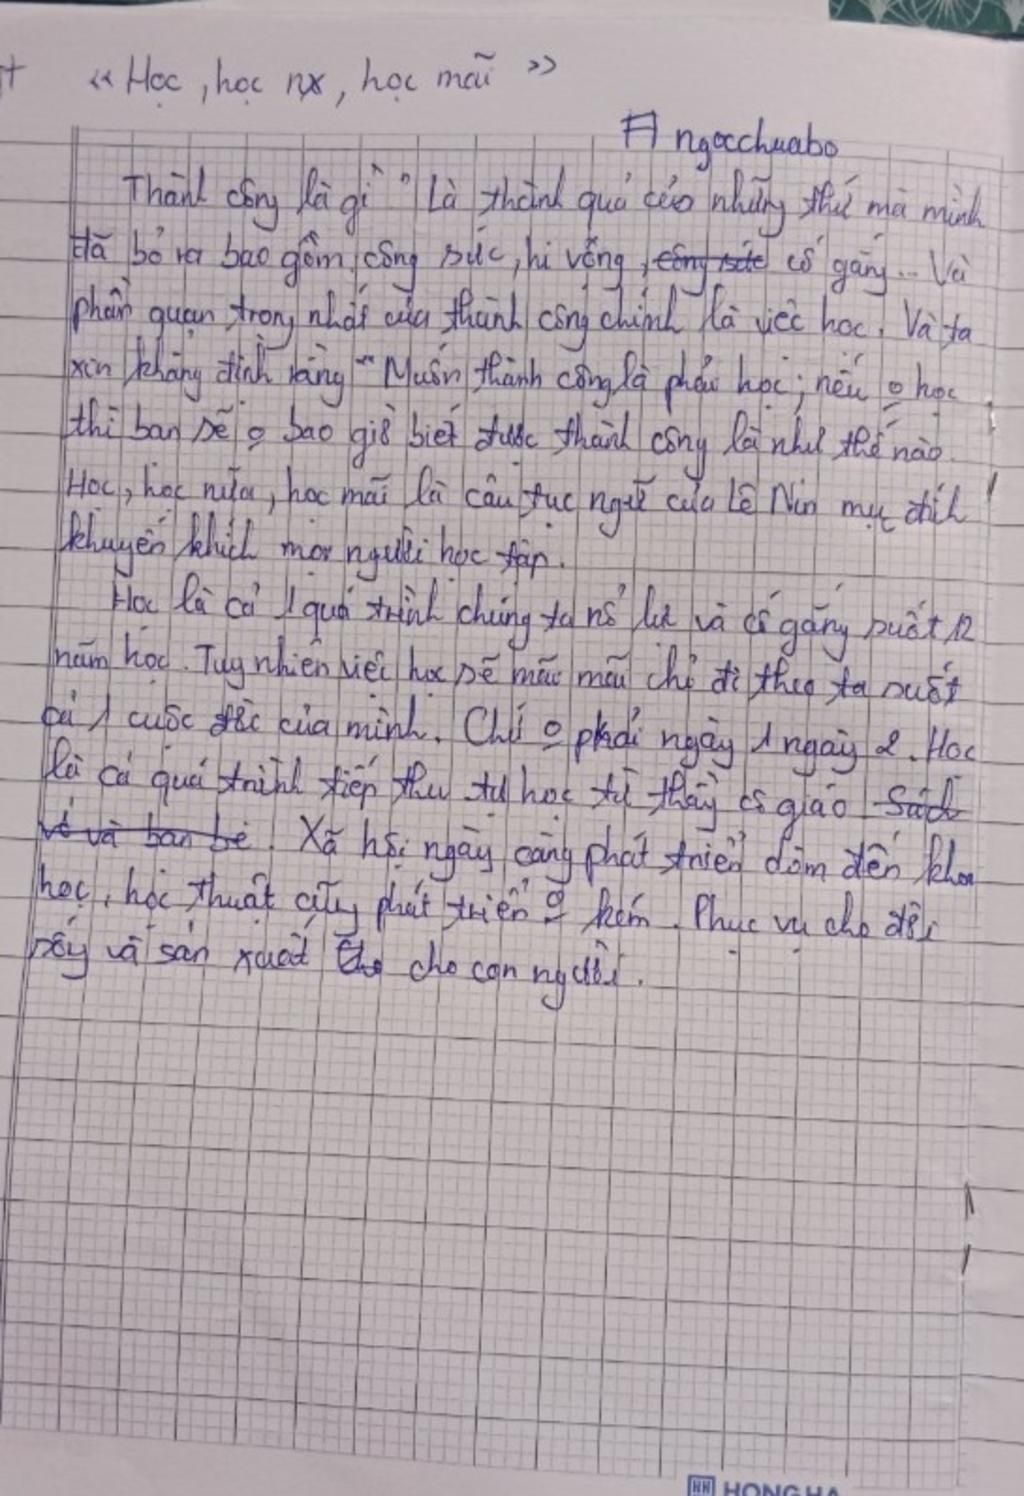 “ Học, học nx, học mãi ”
# ngocchuabo
Thành công là gì " Là thành quả của những thứ mà mình
đã bỏ ra bao gồm công sức, hi vọng, công sức cố gắng... Và
phần quan trọng nhất của thành công chính là việc học. Và ta
xin khẳng định rằng " Muốn thành công là phải học; nếu o học
thì bạn sẽ o bao giờ biết được thành công là như thế nào.
Học, học nữa, học mãi là câu tục ngữ của Lê Nin mục đích
khuyến khích mọi người học tập.
Học là cả 1 quá trình chúng ta nổ lực và cố gắng suốt 12
năm học. Tuy nhiên việc học sẽ mãi mãi chỉ đi theo ta suốt
cả 1 cuộc đời của mình. Chứ o phải ngày 1 ngày 2. Học
là cả quá trình tiếp thu tự học từ thầy cô giáo Sách
vở và bạn bè. Xã hội ngày càng phát triển đến khoa
học, học thuật cũng phát triển o kém. Phục vụ cho đời
sống và sản xuất cho cho con người.
HH HONG HA